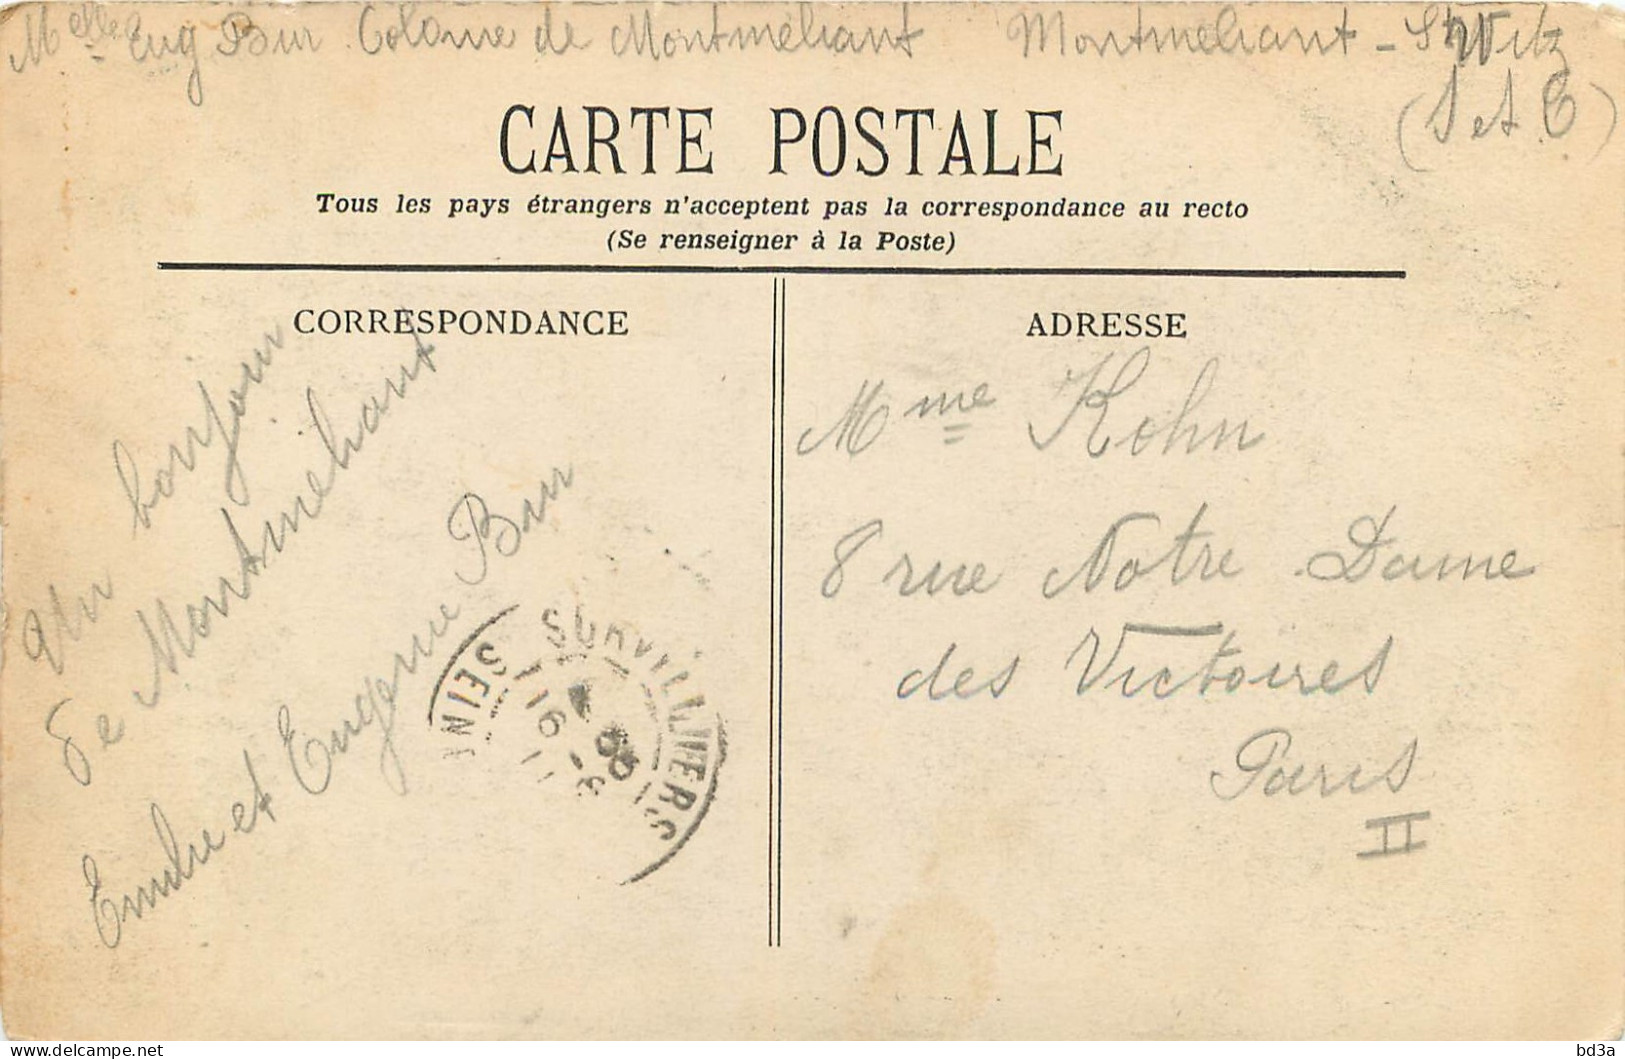 Melle Eug Bur Colonie de Montméliant Montméliant - St Witz
(S et O)
CARTE POSTALE
Tous les pays étrangers n'acceptent pas la correspondance au recto
(Se renseigner à la Poste)
CORRESPONDANCE
Un bonjour
de Montméliant
Emilie et Eugénie Bur
SURVILLIERS
SEINE
ADRESSE
Mme Kohn
8 rue Notre Dame
des Victoires
Paris
II
bd3a